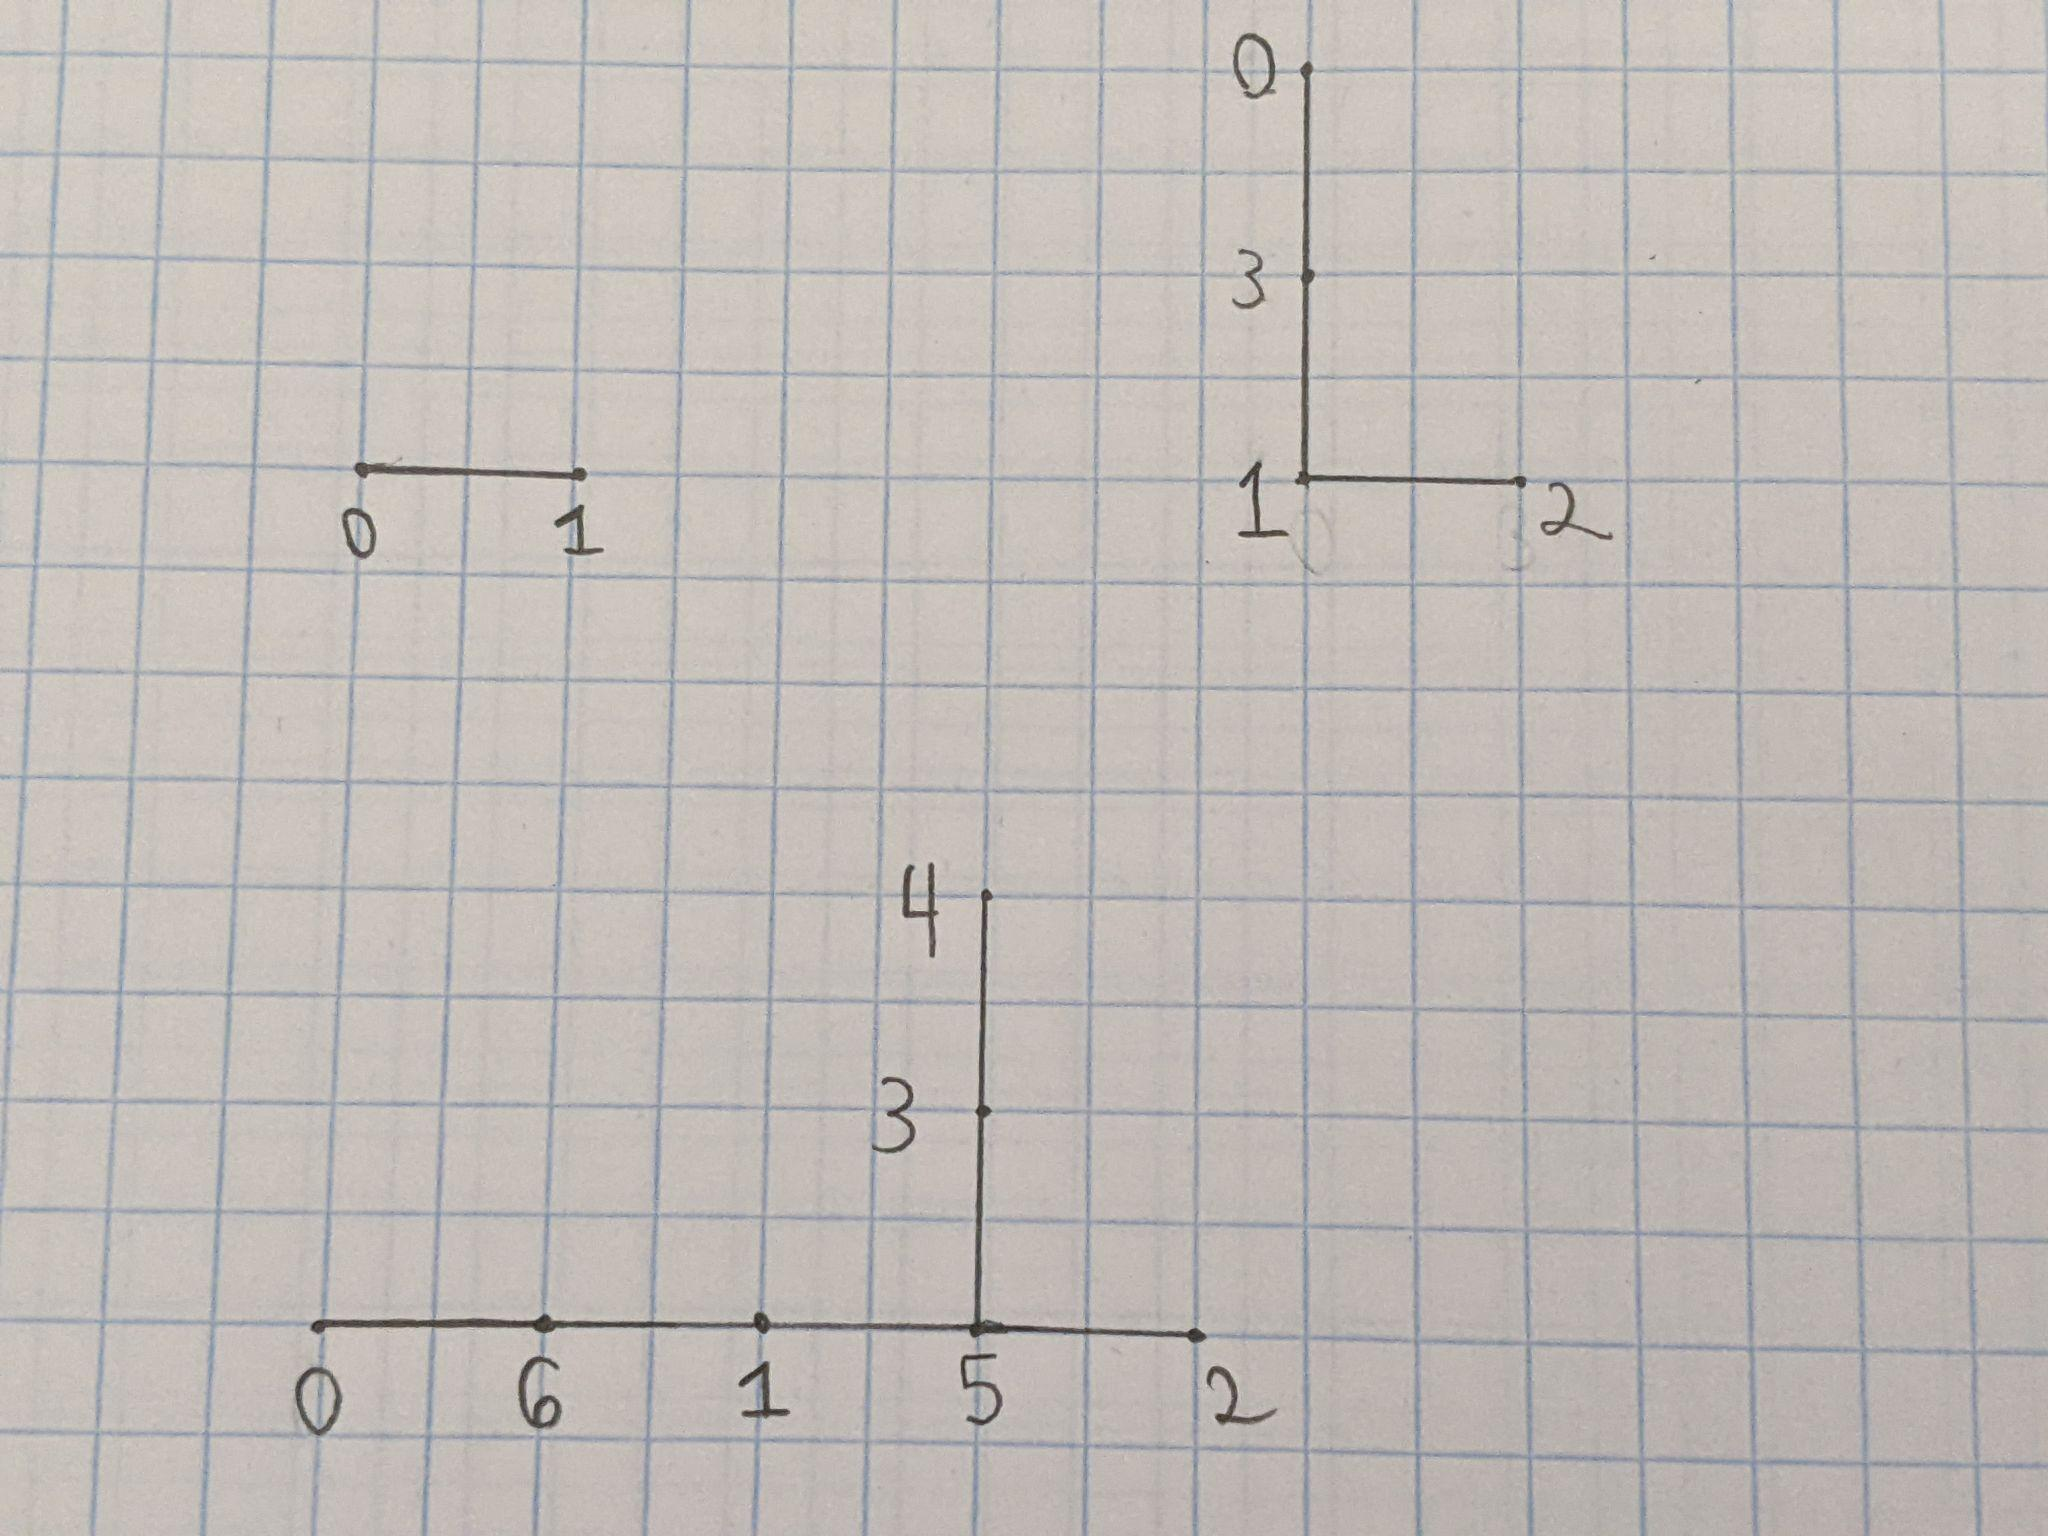 0
3
0 1
1 2
4
3
0 6 1 5 2